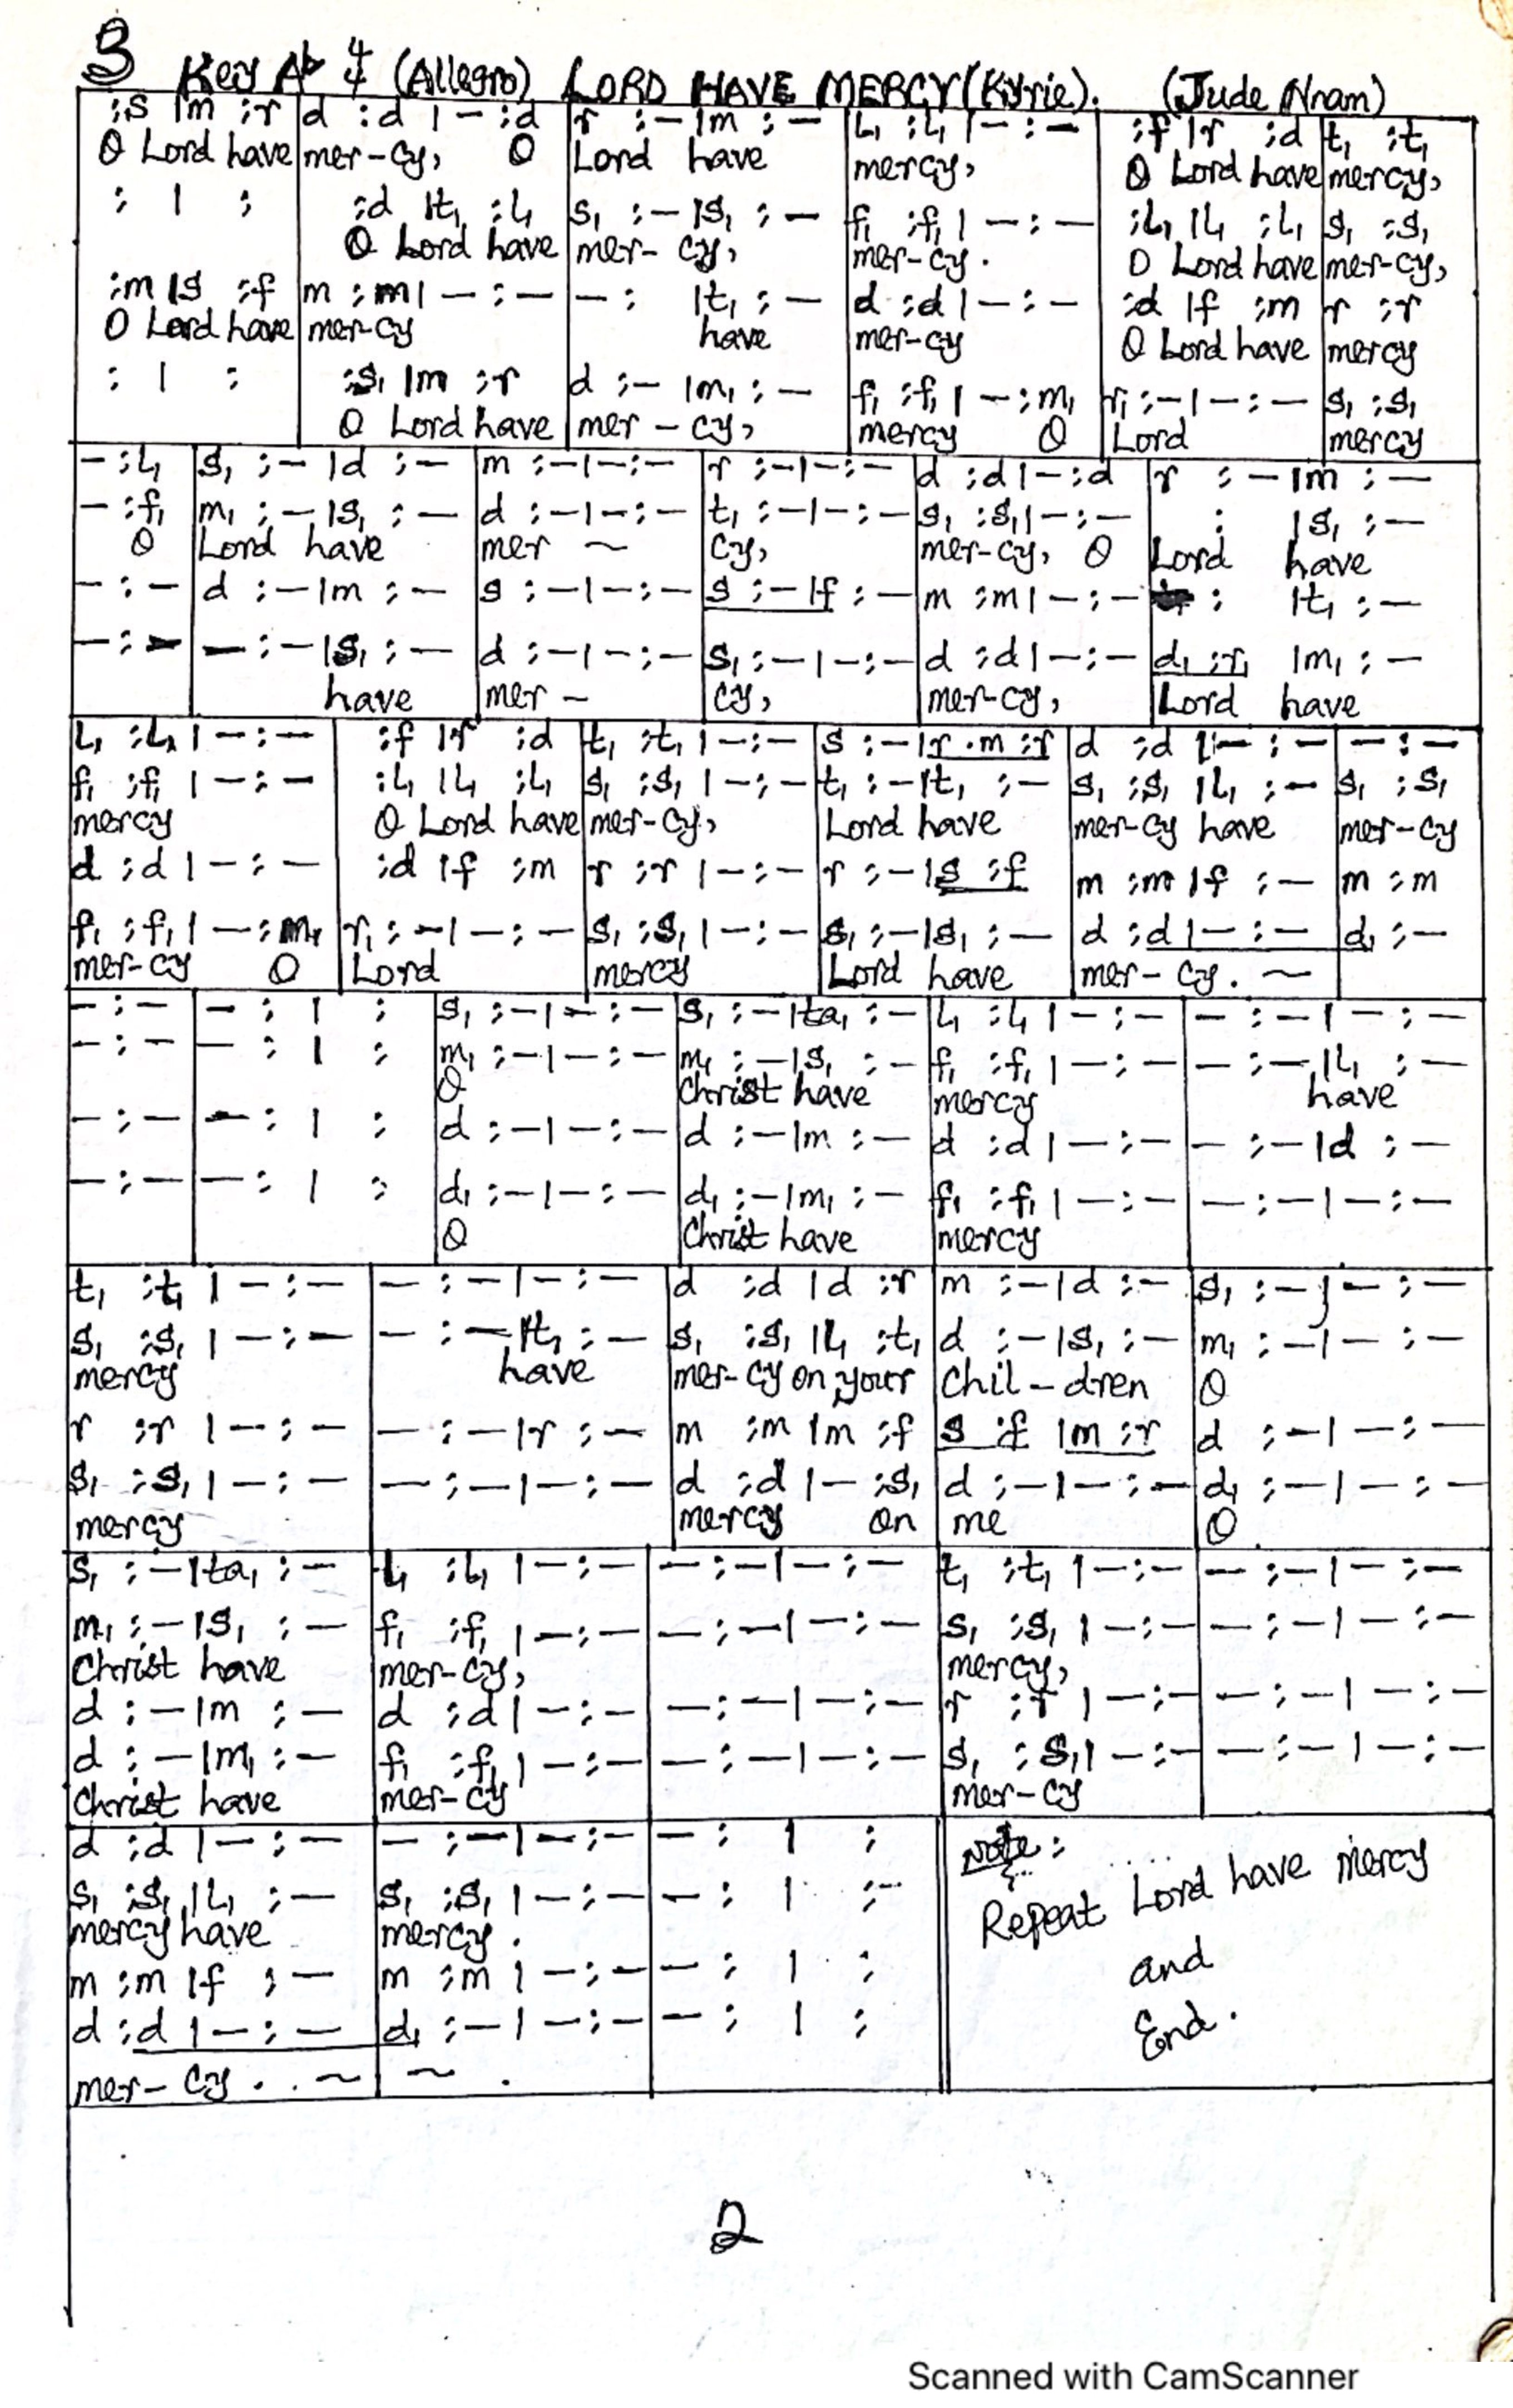 3 Key Ab 4/4 (Allegro) LORD HAVE MERCY (Kyrie). (Jude Nnam)
:s |m :r | d :d | - :d | r :- |m :- | l₁ :l₁ | - :- | :f |r :d | t₁ :t₁
O Lord have mer-cy, O Lord have mercy, O Lord have mercy,
: | : | :d |t₁ :l₁ | s₁ :- |s₁ :- | f₁ :f₁ | - :- | :l₁ |l₁ :l₁ | s₁ :s₁
O Lord have mer-cy, mer-cy. O Lord have mer-cy,
:m |s :f | m :m | - :- | - : |t₁ :- | d :d | - :- | :d |f :m | r :r
O Lord have mer-cy have mer-cy O Lord have mercy
: | : | :s₁ |m :r | d :- |m₁ :- | f₁ :f₁ | - :m₁ | r₁ :- | - :- | s₁ :s₁
O Lord have mer-cy, mercy O Lord mercy
- :l₁ | s₁ :- |d :- | m :- | - :- | r :- | - :- | d :d | - :d | r :- |m :-
- :f₁ | m₁ :- |s₁ :- | d :- | - :- | t₁ :- | - :- | s₁ :s₁ | - :- | : |s₁ :-
O Lord have mer ~ cy, mer-cy, O Lord have
- :- | d :- |m :- | s :- | - :- | s :- |f :- | m :m | - :- | : |t₁ :-
- :- | - :- |s₁ :- | d :- | - :- | s₁ :- | - :- | d :d | - :- | d₁ :r₁ |m₁ :-
have mer - cy, mer-cy, Lord have
l₁ :l₁ | - :- | :f |r :d | t₁ :t₁ | - :- | s :- |r .m :r | d :d | - :- | - :-
f₁ :f₁ | - :- | :l₁ |l₁ :l₁ | s₁ :s₁ | - :- | t₁ :- |t₁ :- | s₁ :s₁ |l₁ :- | s₁ :s₁
mercy O Lord have mer-cy, Lord have mer-cy have mer-cy
d :d | - :- | :d |f :m | r :r | - :- | r :- |s :f | m :m |f :- | m :m
f₁ :f₁ | - :m₁ | r₁ :- | - :- | s₁ :s₁ | - :- | s₁ :- |s₁ :- | d :d | - :- | d₁ :-
mer-cy O Lord mercy Lord have mer-cy. ~
- :- | - : | : | s₁ :- | - :- | s₁ :- |ta₁ :- | l₁ :l₁ | - :- | - :- | - :-
- :- | - : | : | m₁ :- | - :- | m₁ :- |s₁ :- | f₁ :f₁ | - :- | - :- |l₁ :-
O Christ have mercy have
- :- | - : | : | d :- | - :- | d :- |m :- | d :d | - :- | - :- |d :-
- :- | - : | : | d₁ :- | - :- | d₁ :- |m₁ :- | f₁ :f₁ | - :- | - :- | - :-
O Christ have mercy
t₁ :t₁ | - :- | - :- | - :- | d :d |d :r | m :- |d :- | s₁ :- | - :-
s₁ :s₁ | - :- | - :- |t₁ :- | s₁ :s₁ |l₁ :t₁ | d :- |s₁ :- | m₁ :- | - :-
mercy have mer-cy on your Chil-dren O
r :r | - :- | - :- |r :- | m :m |m :f | s :f |m :r | d :- | - :-
s₁ :s₁ | - :- | - :- | - :- | d :d | - :s₁ | d :- | - :- | d₁ :- | - :-
mercy mercy on me O
s₁ :- |ta₁ :- | l₁ :l₁ | - :- | - :- | - :- | t₁ :t₁ | - :- | - :- | - :-
m₁ :- |s₁ :- | f₁ :f₁ | - :- | - :- | - :- | s₁ :s₁ | - :- | - :- | - :-
Christ have mer-cy, mercy,
d :- |m :- | d :d | - :- | - :- | - :- | r :r | - :- | - :- | - :-
d :- |m₁ :- | f₁ :f₁ | - :- | - :- | - :- | s₁ :s₁ | - :- | - :- | - :-
Christ have mer-cy mer-cy
d :d | - :- | - :- | - :- | - : | :
s₁ :s₁ |l₁ :- | s₁ :s₁ | - :- | - : | :-
mercy have mercy.
m :m |f :- | m :m | - :- | - : | :
d :d | - :- | d₁ :- | - :- | - : | :
mer-cy. . ~ ~ .
Note:
Repeat Lord have mercy
and
End.
2
Scanned with CamScanner